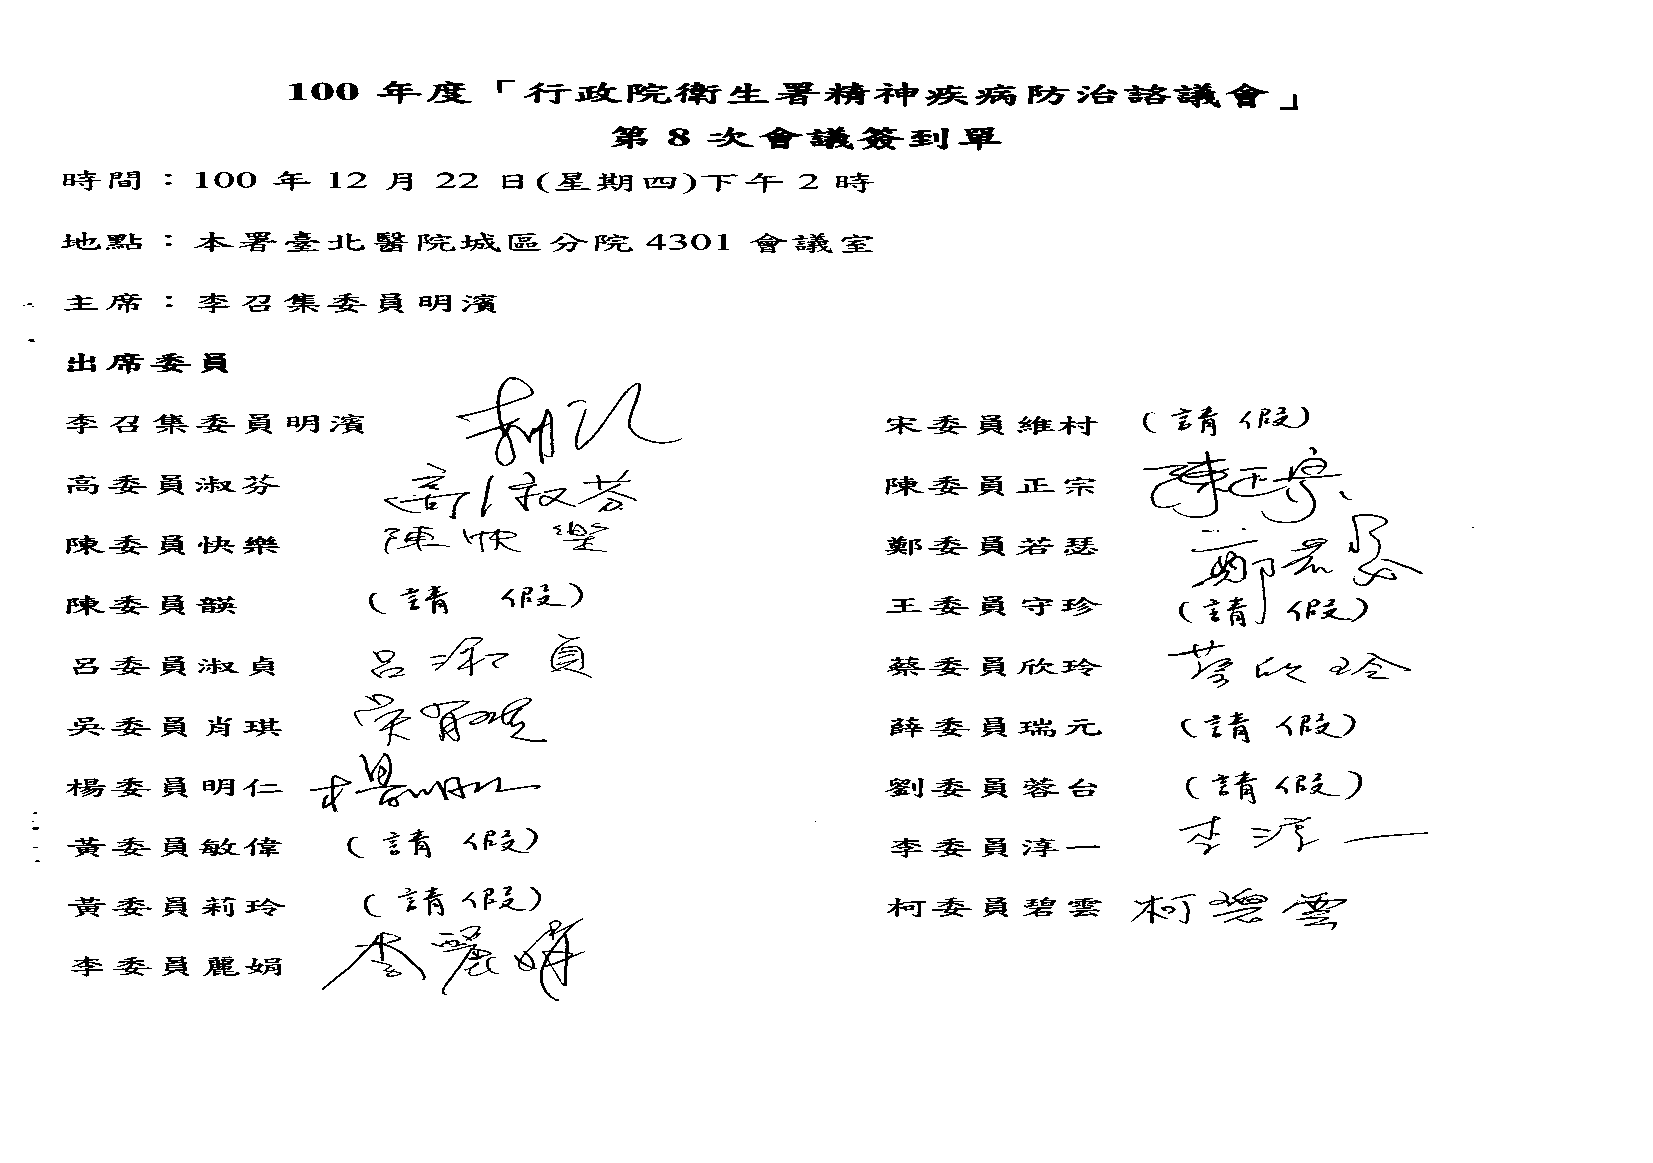 100 年度「行政院衛生署精神疾病防治諮議會」
第 8 次會議簽到單
時間：100 年 12 月 22 日(星期四)下午 2 時
地點：本署臺北醫院城區分院 4301 會議室
主席：李召集委員明濱
出席委員
李召集委員明濱
高委員淑芬 高淑芬
陳委員快樂 陳快樂
陳委員韺 (請 假)
呂委員淑貞 呂淑貞
吳委員肖琪 吳肖琪
楊委員明仁 楊明仁
黃委員敏偉 (請 假)
黃委員莉玲 (請 假)
李委員麗娟 李麗娟
宋委員維村 (請 假)
陳委員正宗 陳正宗
鄭委員若瑟 鄭若瑟
王委員守珍 (請 假)
蔡委員欣玲 蔡欣玲
薛委員瑞元 (請 假)
劉委員蓉台 (請 假)
李委員淳一 李淳一
柯委員碧雲 柯碧雲